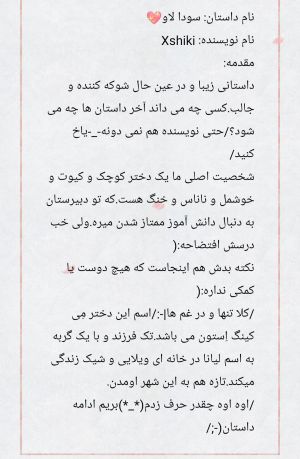 نام داستان: سودا لاو💖
نام نویسنده: Xshiki
مقدمه:
داستانی زیبا و در عین حال شوکه کننده و
جالب.کسی چه می داند آخر داستان ها چه می
شود؟/حتی نویسنده هم نمی دونه-_-یاخ
کنید/
شخصیت اصلی ما یک دختر کوچک و کیوت و
خوشمل و ناناس و خنگ هست.که تو دبیرستان
به دنبال دانش آموز ممتاز شدن میره.ولی خب
درسش افتضاحه:(
نکته بدش هم اینجاست که هیچ دوست یا
کمکی نداره:(
/کلا تنها و در غم ها|-:/اسم این دختر می
کینگ اِستون می باشد.تک فرزند و با یک گربه
به اسم لیانا در خانه ای ویلایی و شیک زندگی
میکند.تازه هم به این شهر اومدن.
/اوه اوه چقدر حرف زدم(*_*)بریم ادامه
داستان(-;/